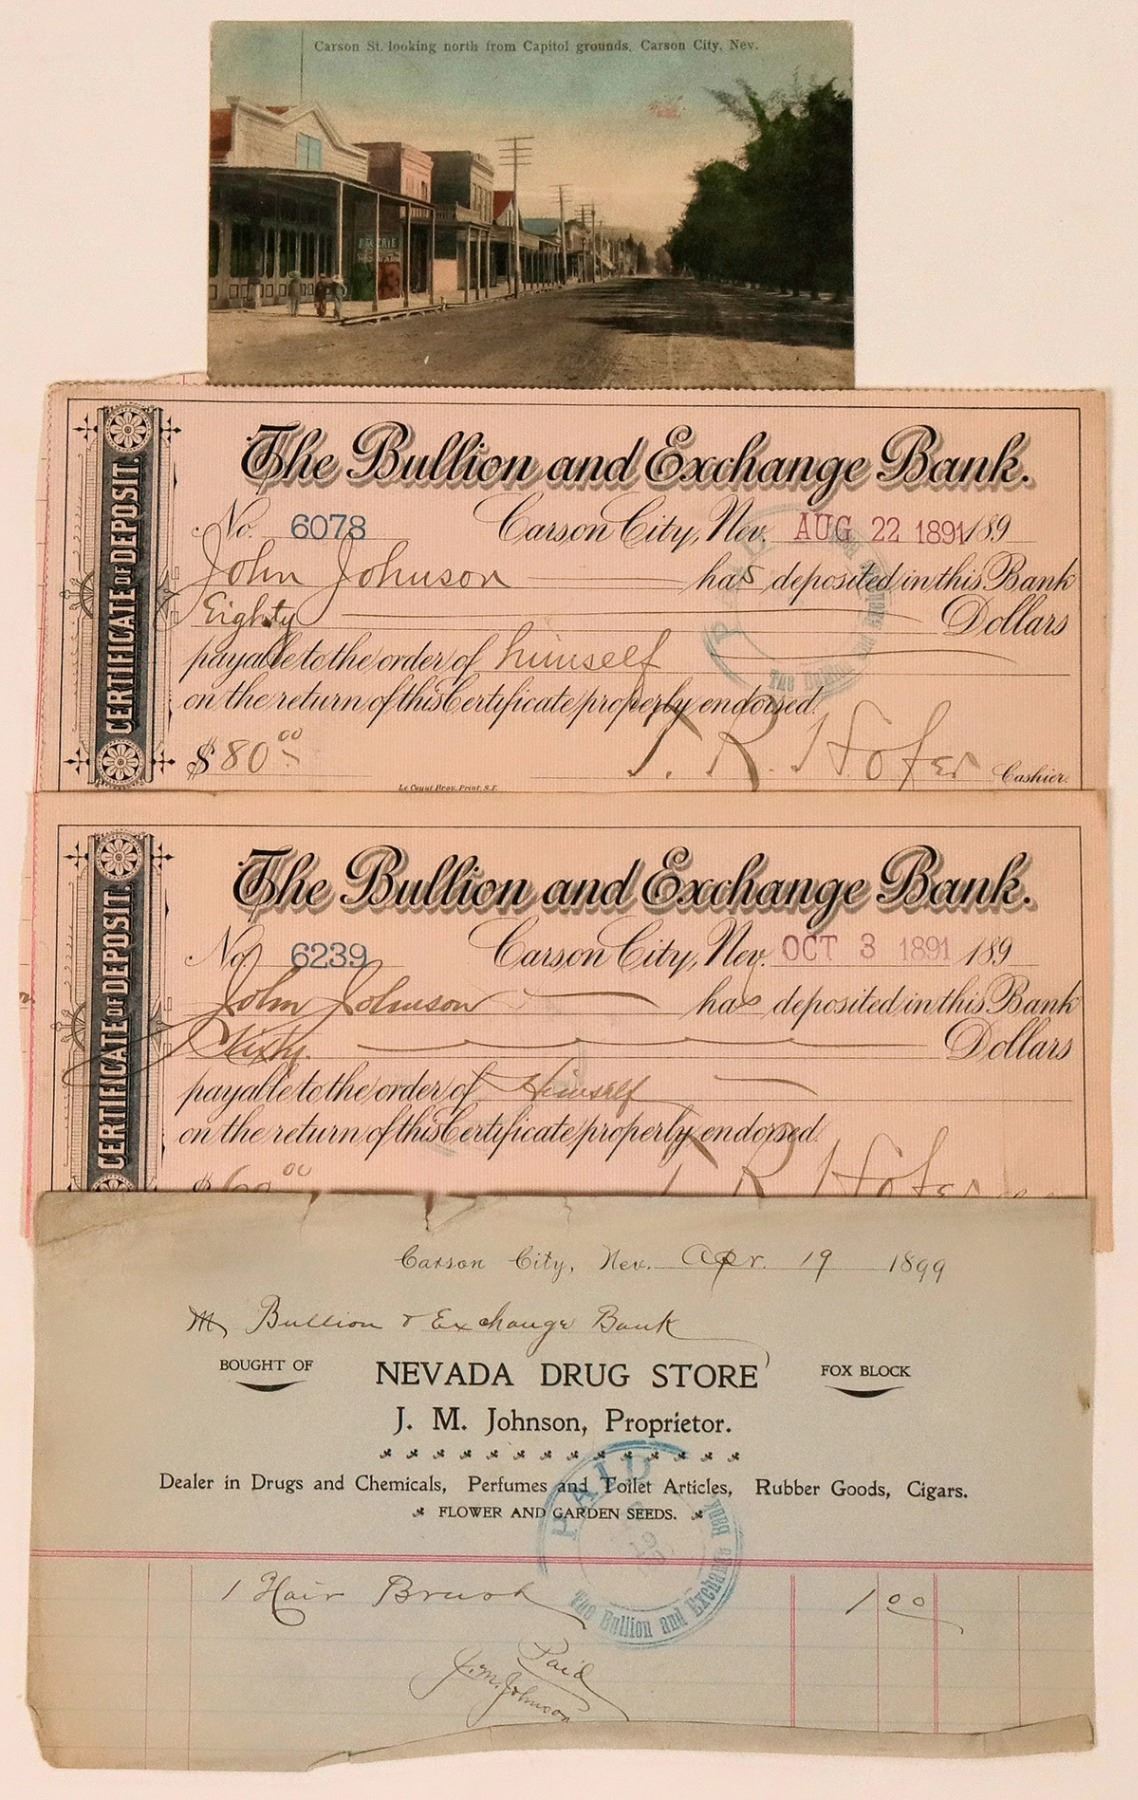 Carson St. looking north from Capitol grounds, Carson City, Nev.
CERTIFICATE OF DEPOSIT.
The Bullion and Exchange Bank.
No. 6078 Carson City, Nev. AUG 22 1891 189
John Johnson has deposited in this Bank
Eighty Dollars
payable to the order of himself
on the return of this Certificate properly endorsed.
$80.00 T. R. Hofer Cashier.
Le Count Bros. Print. S.F.
CERTIFICATE OF DEPOSIT.
The Bullion and Exchange Bank.
No. 6239 Carson City, Nev. OCT 3 1891 189
John Johnson has deposited in this Bank
Sixty Dollars
payable to the order of Himself
on the return of this Certificate properly endorsed.
$60.00 T R Hofer
Carson City, Nev. Apr. 19 1899
M Bullion & Exchange Bank
BOUGHT OF NEVADA DRUG STORE FOX BLOCK
J. M. Johnson, Proprietor.
Dealer in Drugs and Chemicals, Perfumes and Toilet Articles, Rubber Goods, Cigars.
FLOWER AND GARDEN SEEDS.
PAID
The Bullion and Exchange Bank
1 Hair Brush 1 00
Paid
J. M. Johnson